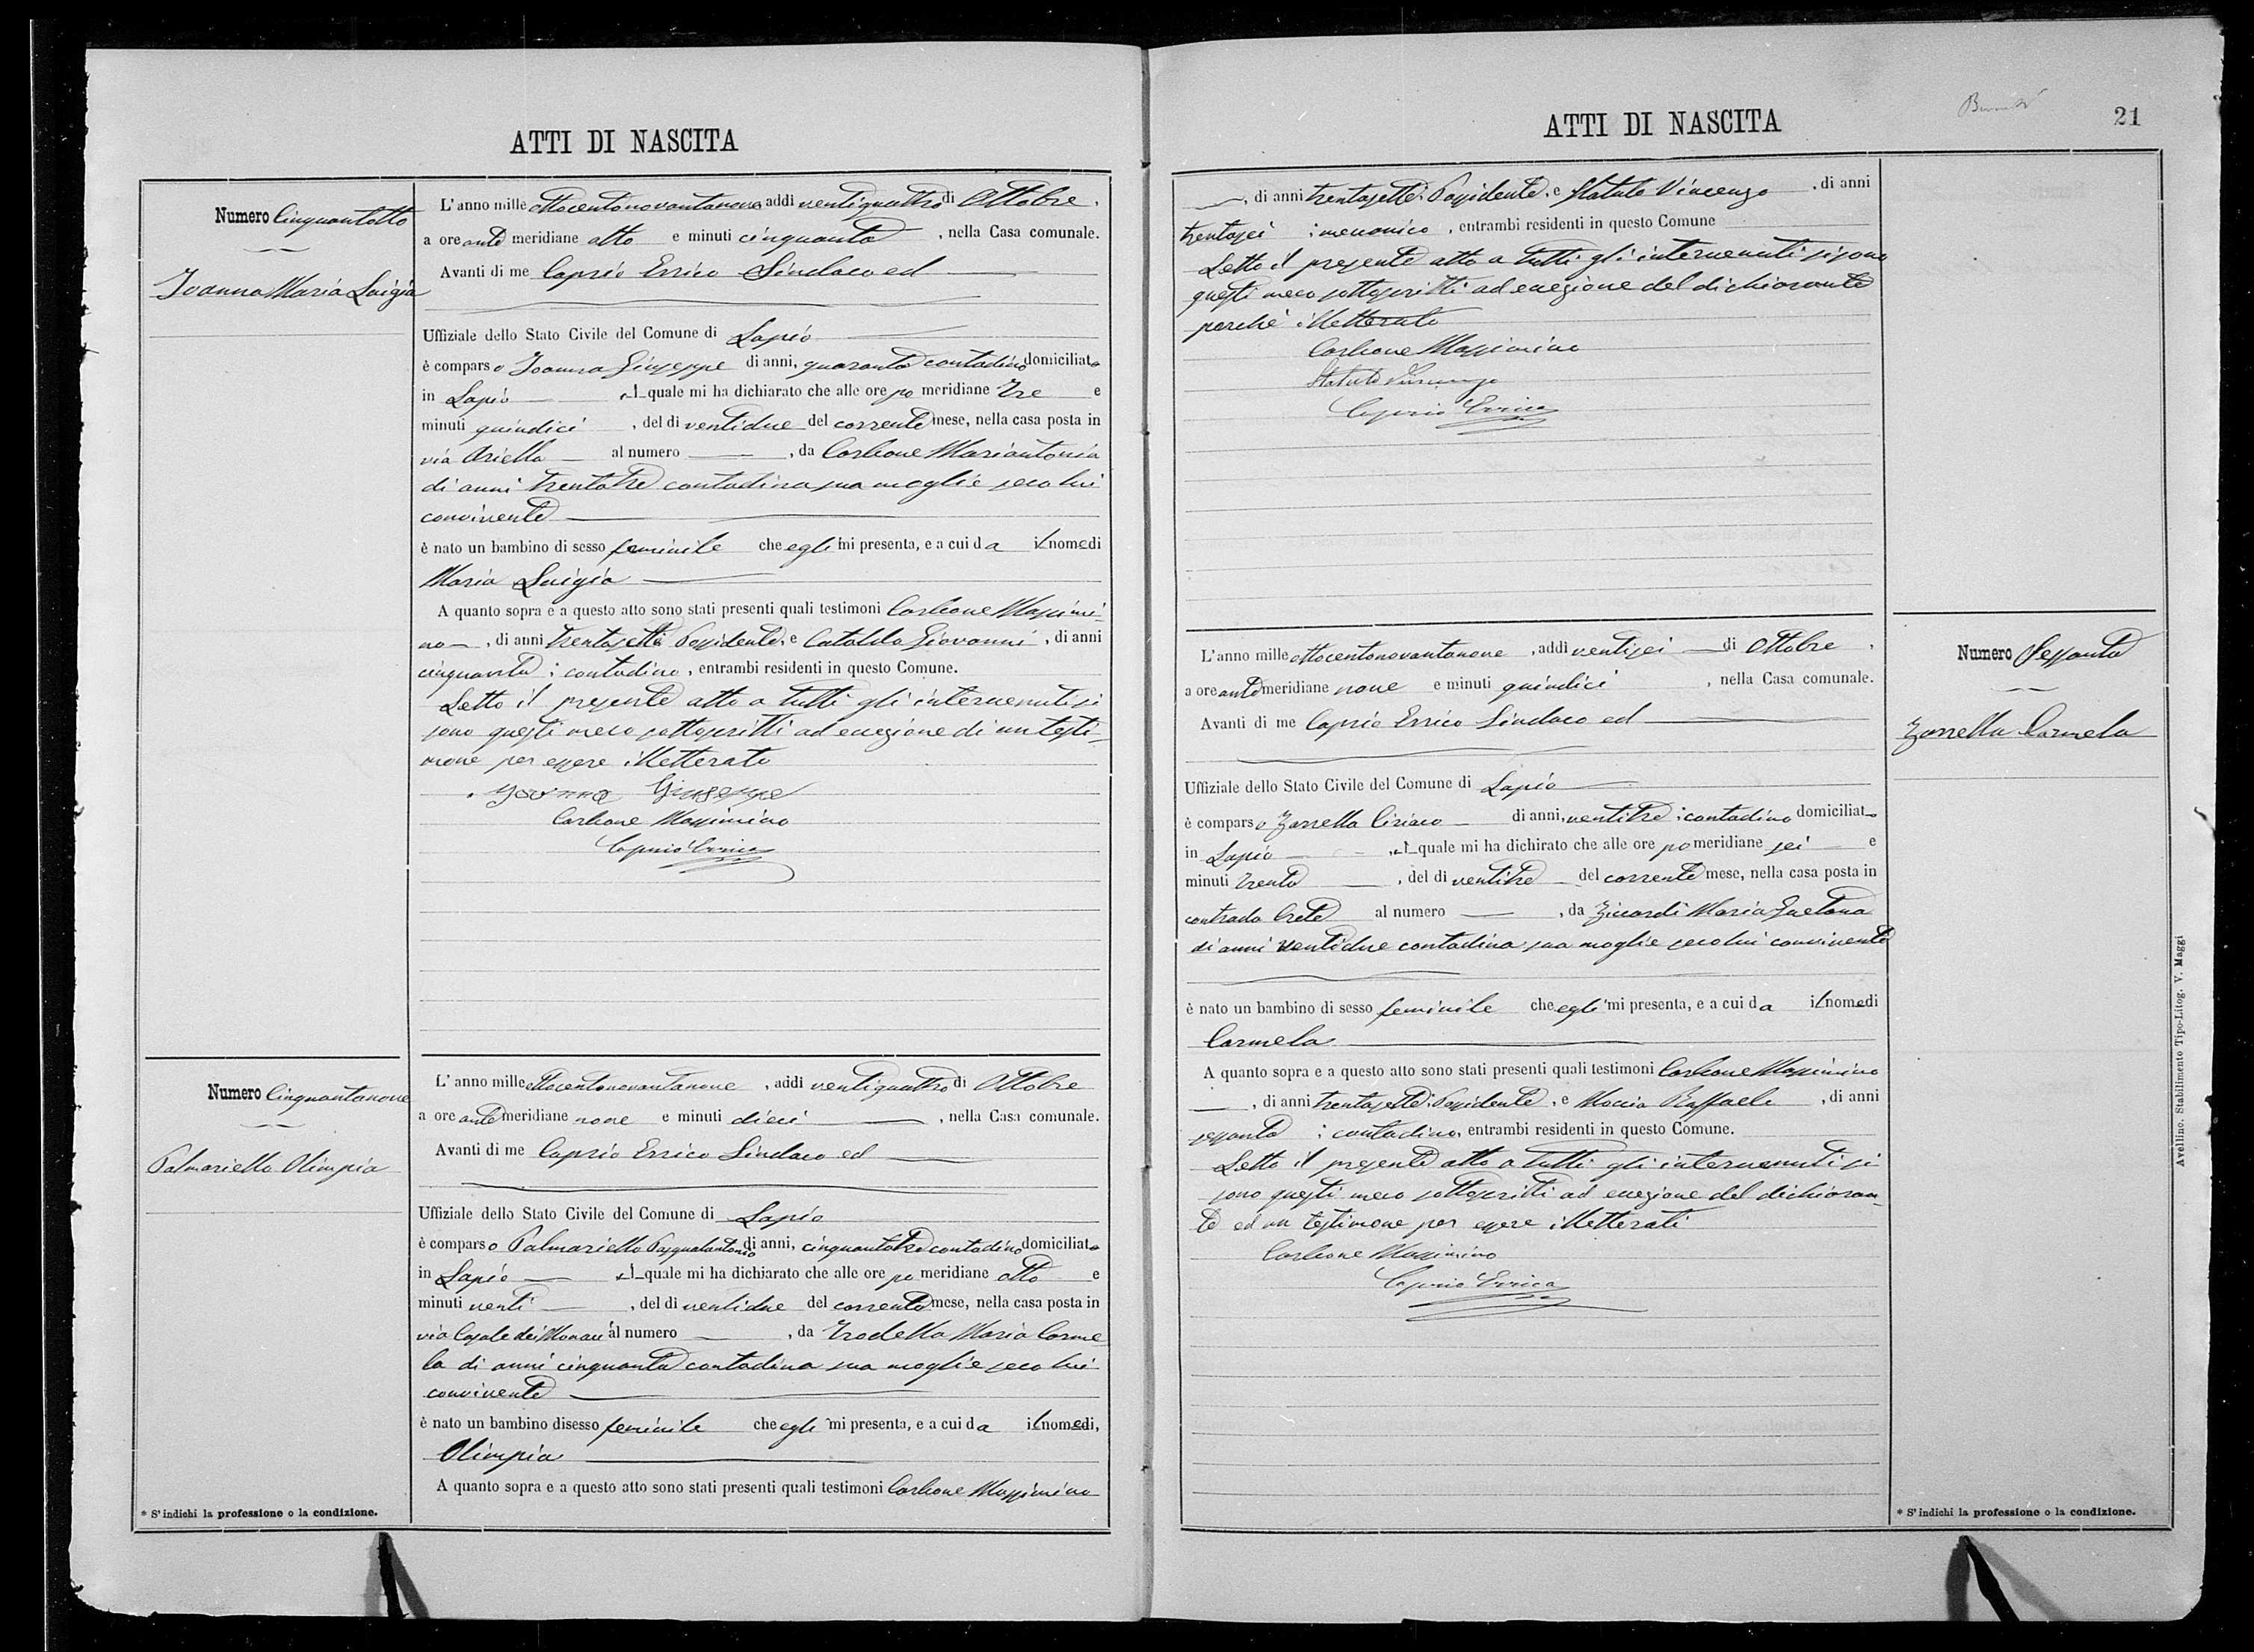 ATTI DI NASCITA
Numero Cinquantotto
Ioanna Maria Luigia
L'anno mille ottocentonovantanove, addì ventiquattro di Ottobre,
a ore ante meridiane otto e minuti cinquanta, nella Casa comunale.
Avanti di me Caprio Errico Sindaco ed
Uffiziale dello Stato Civile del Comune di Lapio
è comparso Ioanna Giuseppe di anni, quaranta contadino domiciliato
in Lapio, il quale mi ha dichiarato che alle ore po meridiane tre e
minuti quindici, del dì ventidue del corrente mese, nella casa posta in
via Ariella al numero , da Carbone Mariantonia
di anni trentatre contadina sua moglie seco lui
convivente
è nato un bambino di sesso feminile che egli mi presenta, e a cui da il nome di
Maria Luigia
A quanto sopra e a questo atto sono stati presenti quali testimoni Carbone Massimi-
no, di anni trentasette Possidente, e Cataldo Giovanni, di anni
cinquanta; contadino, entrambi residenti in questo Comune.
Letto il presente atto a tutti gli intervenuti si
sono questi meco sottoscritti ad eccezione di un testi-
mone per essere illetterato
Iovnna Giuseppe
Carbone Massimino
Caprio Errico
Numero Cinquantanove
Palmariello Olimpia
L'anno mille ottocentonovantanove, addì ventiquattro di Ottobre
a ore ante meridiane nove e minuti dieci, nella Casa comunale.
Avanti di me Caprio Errico Sindaco ed
Uffiziale dello Stato Civile del Comune di Lapio
è comparso Palmariello Pasqualantonio di anni, cinquantatre contadino domiciliato
in Lapio, il quale mi ha dichiarato che alle ore po meridiane otto e
minuti venti, del dì ventidue del corrente mese, nella casa posta in
via Casale dei Monaci al numero , da Trodella Maria Carme
la di anni cinquanta contadina sua moglie seco lui
convivente
è nato un bambino di sesso feminile che egli mi presenta, e a cui da il nome di,
Olimpia
A quanto sopra e a questo atto sono stati presenti quali testimoni Carbone Massimino
* S'indichi la professione o la condizione.
ATTI DI NASCITA
21
, di anni trentasette; Possidente, e Statuto Vincenzo, di anni
trentasei; meccanico, entrambi residenti in questo Comune
Letto il presente atto a tutti gli intervenuti si sono
questi meco sottoscritti ad eccezione del dichiarante
perchè illetterato
Carbone Massimino
Statuto Vincenzo
Caprio Errico
Numero Sessanta
Zarrella Carmela
L'anno mille ottocentonovantanove, addì ventisei di Ottobre,
a ore ante meridiane nove e minuti quindici, nella Casa comunale.
Avanti di me Caprio Errico Sindaco ed
Uffiziale dello Stato Civile del Comune di Lapio
è comparso Zarrella Ciriaco di anni, ventitre; contadino domiciliato
in Lapio, il quale mi ha dichirato che alle ore po meridiane sei e
minuti trenta, del dì ventitre del corrente mese, nella casa posta in
contrada Crete al numero , da Ziccardi Maria Gaetana
di anni ventidue contadina sua moglie seco lui convivente
è nato un bambino di sesso feminile che egli mi presenta, e a cui da il nome di
Carmela
A quanto sopra e a questo atto sono stati presenti quali testimoni Carbone Massimino
, di anni trentasette; Possidente, e Moccia Raffaele, di anni
sessanta; contadino, entrambi residenti in questo Comune.
Letto il presente atto a tutti gli intervenuti si
sono questi meco sottoscritti ad eccezione del dichiaran-
te ed un testimone per essere illetterati
Carbone Massimino
Caprio Errico
* S'indichi la professione o la condizione.
Avellino. Stabilimento Tipo-Litog. V. Maggi